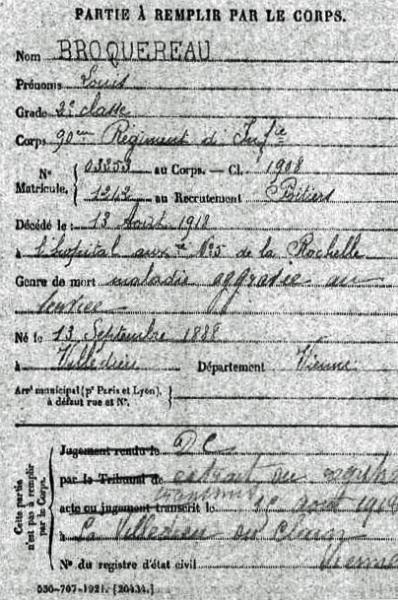 PARTIE À REMPLIR PAR LE CORPS.
Nom BROQUEREAU
Prénoms Louis
Grade 2e classe
Corps 90me Régiment d'Infie
N° Matricule. 03253 au Corps. — Cl. 1908
1212 au Recrutement Poitiers
Décédé le : 13 Août 1918
à l'hopital auxre N°5 de la Rochelle
Genre de mort maladie aggravée au
service
Né le 13 Septembre 1888
à Villedieu Département Vienne
Arrt municipal (pr Paris et Lyon),
à défaut rue et N°.
Cette partie n'est pas à remplir par le Corps.
Jugement rendu le D C
par le Tribunal de extrait du
acte ou jugement transcrit le août 1918
à La Villedieu du Clain
Vienne
N° du registre d'état civil
530-707-1921. [26434.]